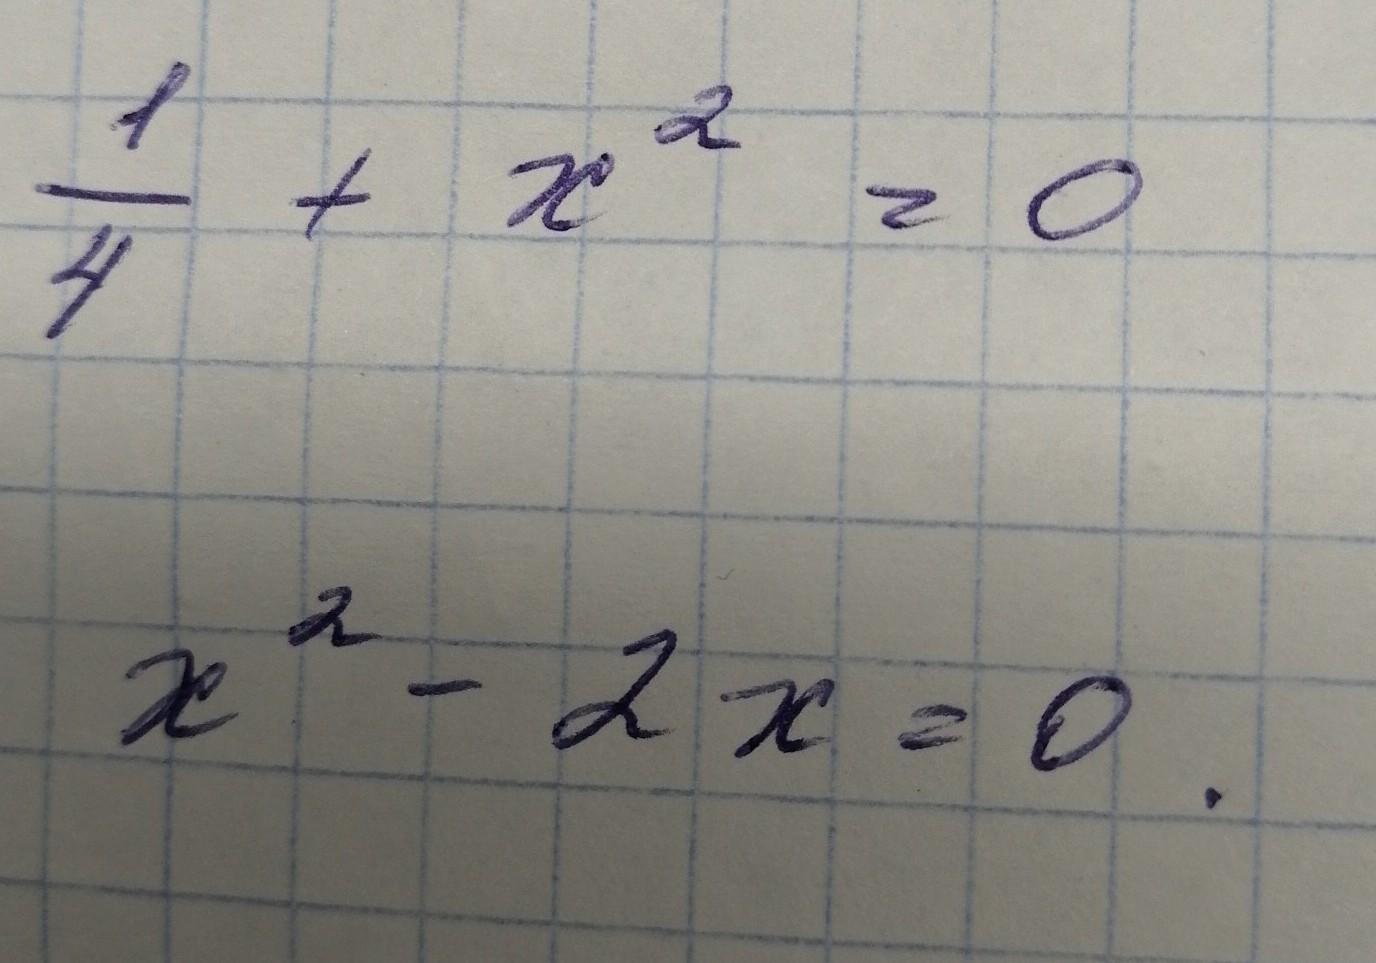 1/4 + x² = 0
x² - 2x = 0.